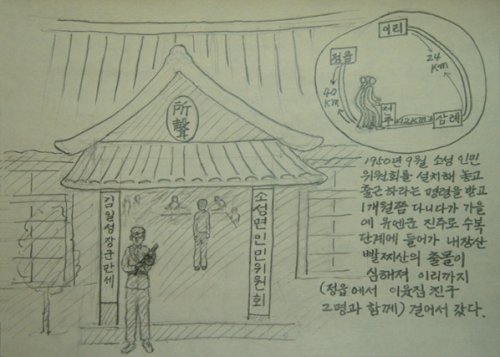 所聲
김일성장군만세
소성면인민위원회
이리
정읍
24
KM
40
KM
전주
12KM
삼례
1950년 9월 소성 인민
위원회를 설치해 놓고
출근하라는 명령을 받고
1개월쯤 다니다가 가을
에 유엔군 진주로 수복
단계에 들어가 내장산
빨찌산의 출몰이
심해져 이리까지
(정읍에서 이웃집 친구
2명과 함께) 걸어서 갔다.